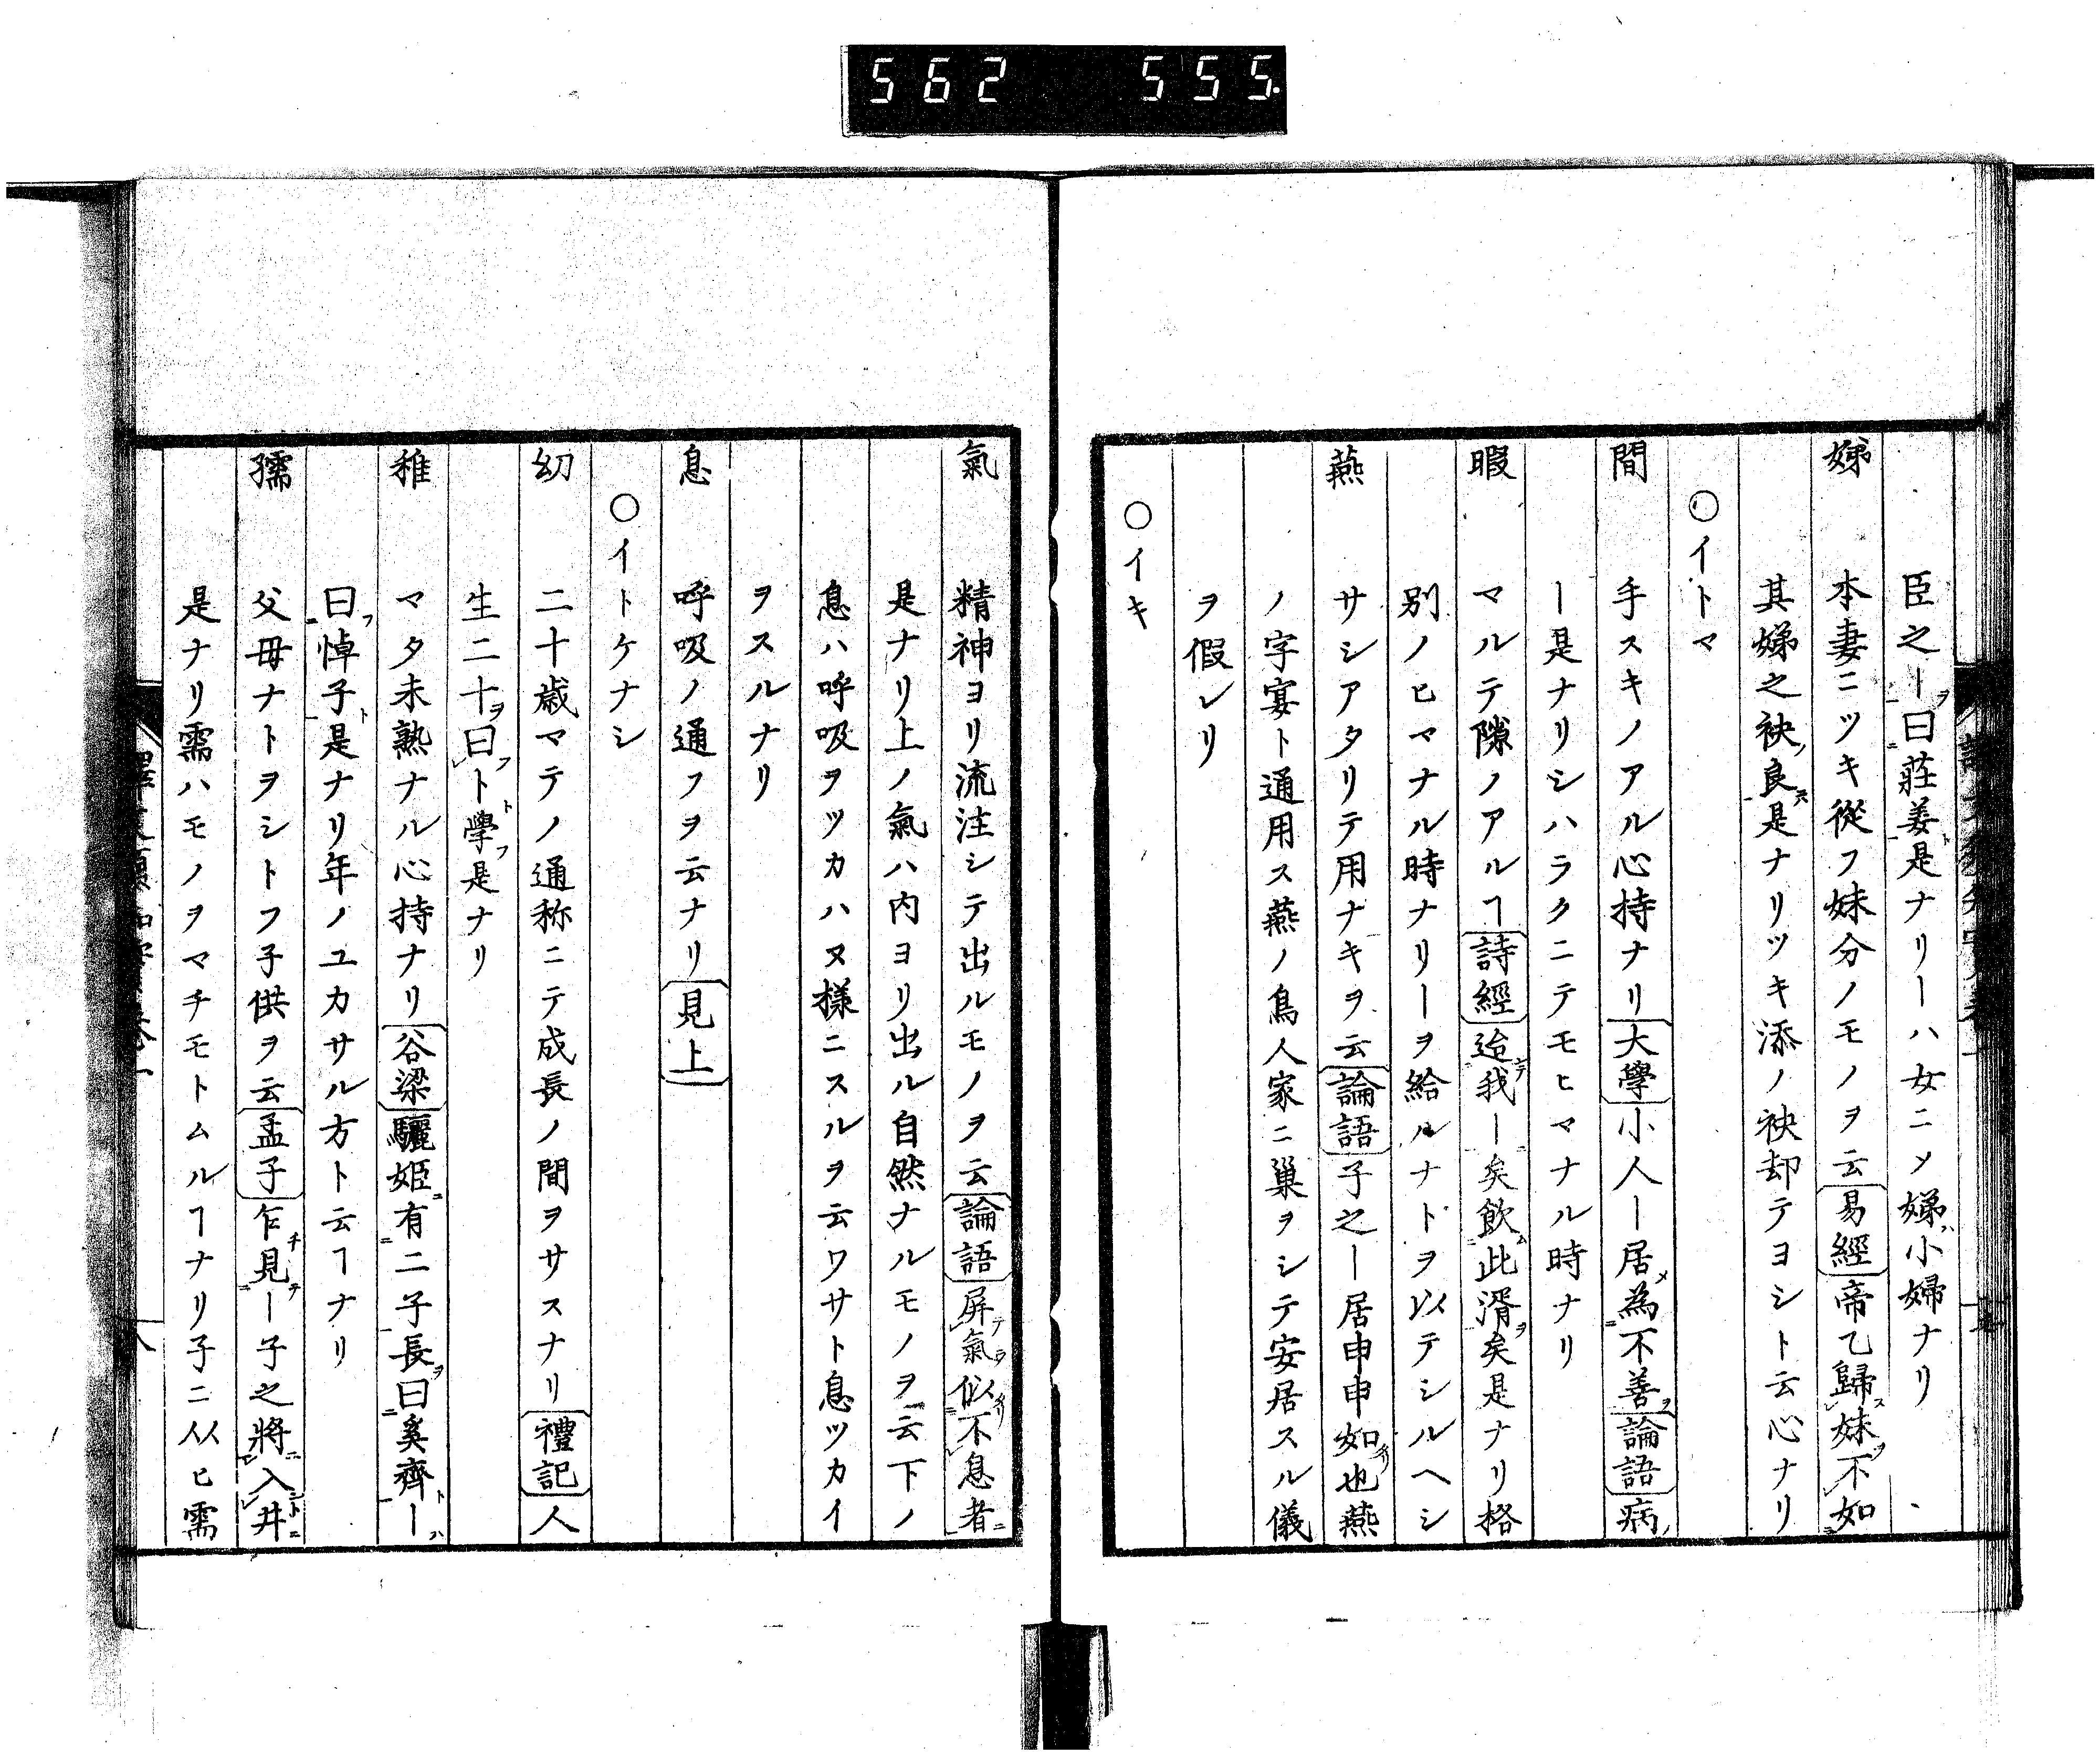 562 555.
臣之ー曰莊姜是ナリーハ女ニメ娣小婦ナリ
娣 本妻ニツキ從フ妹分ノモノヲ云易經帝乙歸妹不如
其娣之袂良是ナリツキ添ノ袂却テヨシト云心ナリ
○イトマ
間 手スキノアル心持ナリ大學小人ー居為不善論語病
ー是ナリシハラクニテモヒマナル時ナリ
暇 マルテ隙ノアルヿ詩經迨我ー矣飲此湑矣是ナリ格
別ノヒマナル時ナリーヲ給ルナトヲ以テシルヘシ
燕 サシアタリテ用ナキヲ云論語子之ー居申申如也燕
ノ字宴ト通用ス燕ノ鳥人家ニ巢ヲシテ安居スル儀
ヲ假レリ
○イキ
氣 精神ヨリ流注シテ出ルモノヲ云論語屏氣似不息者
是ナリ上ノ氣ハ内ヨリ出ル自然ナルモノヲ云下ノ
息ハ呼吸ヲツカハヌ樣ニスルヲ云ワサト息ツカイ
ヲスルナリ
息 呼吸ノ通フヲ云ナリ見上
○イトケナシ
幼 二十歳マテノ通称ニテ成長ノ間ヲサスナリ禮記人
生二十曰ト學是ナリ
稚 マタ未熟ナル心持ナリ谷梁驪姫有二子長曰奚齊ー
曰悼子是ナリ年ノユカサル方ト云ヿナリ
孺 父母ナトヲシトフ子供ヲ云孟子乍見ー子之將入井
是ナリ需ハモノヲマチモトムルヿナリ子ニ从ヒ需
八